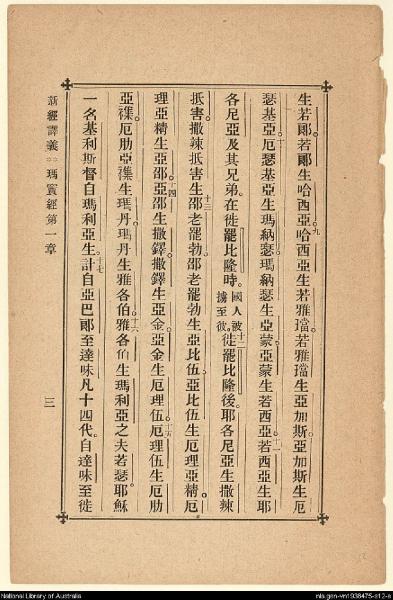 生若郞。若郞生哈西亞。九哈西亞生若雅璫。若雅璫生亞加斯。亞加斯生厄
瑟基亞。十厄瑟基亞生瑪納瑟。瑪納瑟生亞蒙。亞蒙生若西亞。十一若西亞生耶
各尼亞及其兄弟。在徙罷比隆時。國人被擄至彼。十二徙罷比隆後。耶各尼亞生撒辣
抵害。撒辣抵害生邵老罷勃。十三邵老罷勃生亞比伍。亞比伍生厄理亞精。厄
理亞精生亞邵。十四亞邵生撒鐸。撒鐸生亞金。亞金生厄理伍。十五厄理伍生厄肋
亞襍。厄肋亞襍生瑪丹。瑪丹生雅各伯。十六雅各伯生瑪利亞之夫若瑟。耶穌
一名基利斯督自瑪利亞生。十七計自亞巴郞至達味凡十四代。自達味至徙
新經譯義 瑪竇經第一章 三
National Library of Australia
nla.gen-vn1938475-s12-e